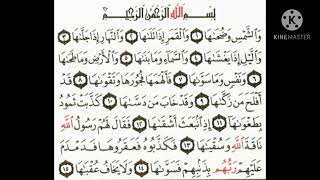 بِسْمِ ٱللَّهِ ٱلرَّحْمَٰنِ ٱلرَّحِيمِ
KINEMASTER
وَٱلشَّمْسِ وَضُحَىٰهَا ١ وَٱلْقَمَرِ إِذَا تَلَىٰهَا ٢ وَٱلنَّهَارِ إِذَا جَلَّىٰهَا ٣
وَٱلَّيْلِ إِذَا يَغْشَىٰهَا ٤ وَٱلسَّمَآءِ وَمَا بَنَىٰهَا ٥ وَٱلْأَرْضِ وَمَا طَحَىٰهَا
٦ وَنَفْسٍ وَمَا سَوَّىٰهَا ٧ فَأَلْهَمَهَا فُجُورَهَا وَتَقْوَىٰهَا ٨ قَدْ
أَفْلَحَ مَن زَكَّىٰهَا ٩ وَقَدْ خَابَ مَن دَسَّىٰهَا ١٠ كَذَّبَتْ ثَمُودُ
بِطَغْوَىٰهَآ ١١ إِذِ ٱنۢبَعَثَ أَشْقَىٰهَا ١٢ فَقَالَ لَهُمْ رَسُولُ ٱللَّهِ
نَاقَةَ ٱللَّهِ وَسُقْيَٰهَا ١٣ فَكَذَّبُوهُ فَعَقَرُوهَا فَدَمْدَمَ
عَلَيْهِمْ رَبُّهُم بِذَنۢبِهِمْ فَسَوَّىٰهَا ١٤ وَلَا يَخَافُ عُقْبَٰهَا ١٥